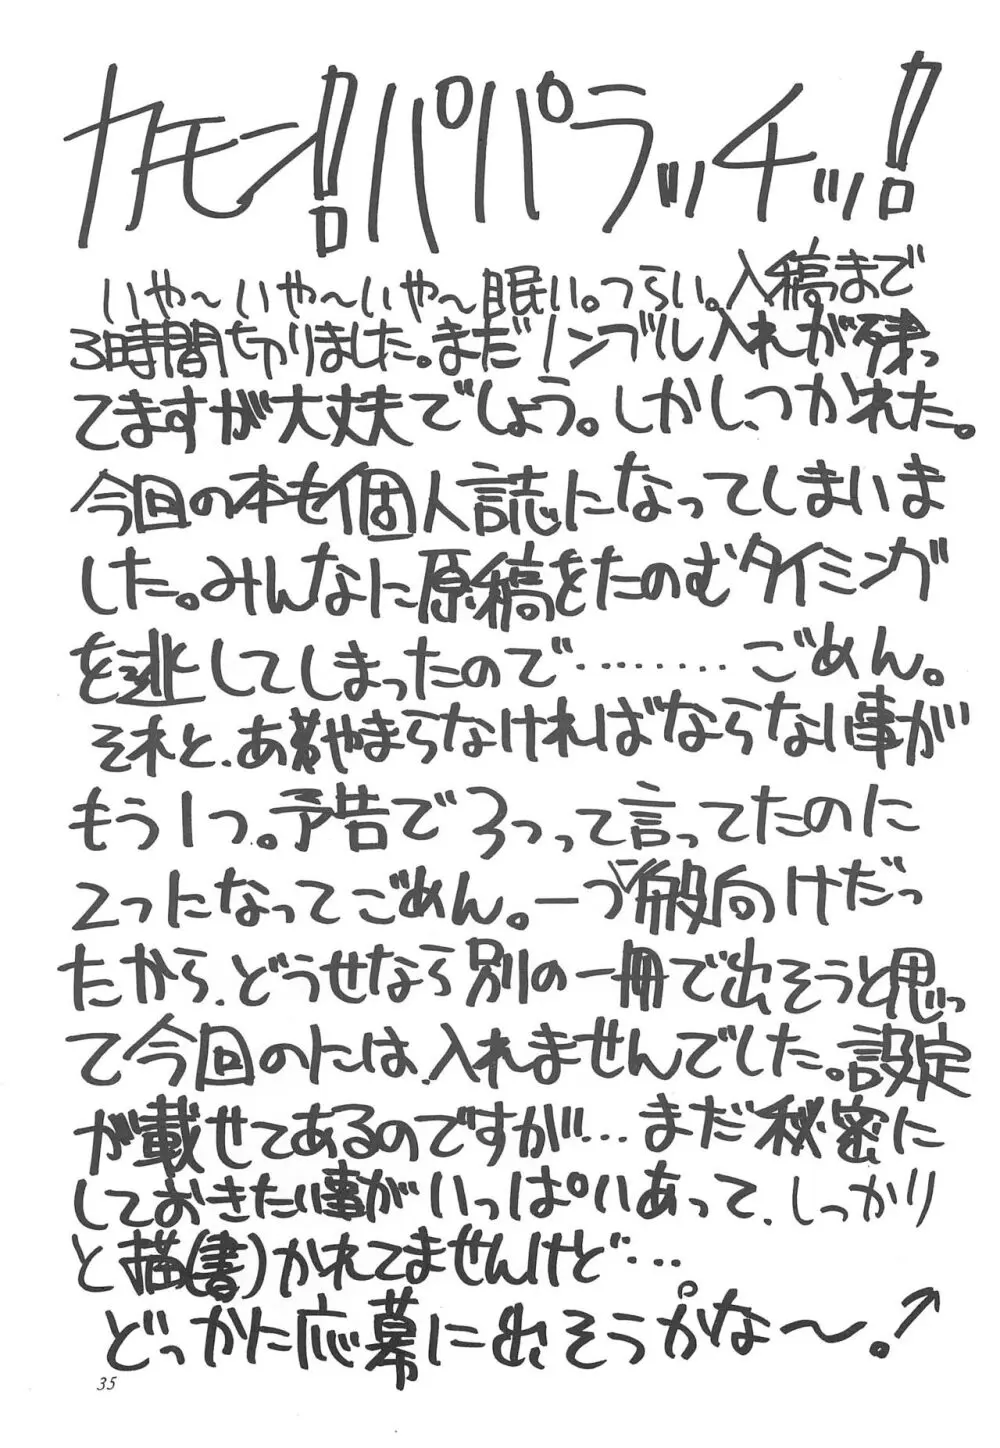 カモン!!パパラッチッ!!
いや〜いや〜いや〜眠い。つらい。入稿まで
3時間切りました。まだノンブル入れが残っ
てますが大丈夫でしょう。しかし、つかれた。
今回の本も個人誌になってしまいま
した。みんなに原稿をたのむタイミング
を逃してしまったので………ごめん。
それと、あやまらなければならない事が
もう1つ。予告で3つって言ってたのに
2つになってごめん。一つ一般向けだっ
たから、どうせなら別の一冊で出そうと思っ
て今回のには、入れませんでした。設定
が載せてあるのですが…まだ秘密に
しておきたい事がいっぱいあって、しっかり
と描(書)かれてませんけど…
どっかに応募に出そうかな〜。↗
35